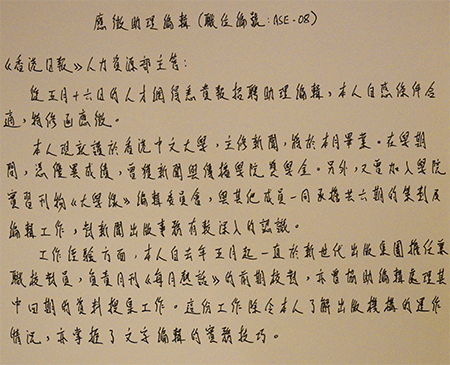 應徵助理編輯(職位編號:ASE-08)
《香港日報》人力資源部主管:
從五月十六日的人才網得悉貴報招聘助理編輯,本人自感條件合
適,特修函應徵。
本人現就讀於香港中文大學,主修新聞,將於本月畢業。在學期
間,念優異成後,曾獲新聞與傳播學院獎學金。另外,又曾加入學院
實習刊物《大學線》編輯委員會,與其他成員一同承擔共六期的策劃及
編輯工作,對新聞出版事務有較深入的認識。
工作經驗方面,本人自去年五月起一直於新世代出版集團擔任兼
職校對員,負責月刊《每月熱話》的前期校對,亦曾協助編輯處理其
中四期的資料搜集工作。這份工作除令本人了解出版機構的運作
情況,亦掌握了文字編輯的實務技巧。